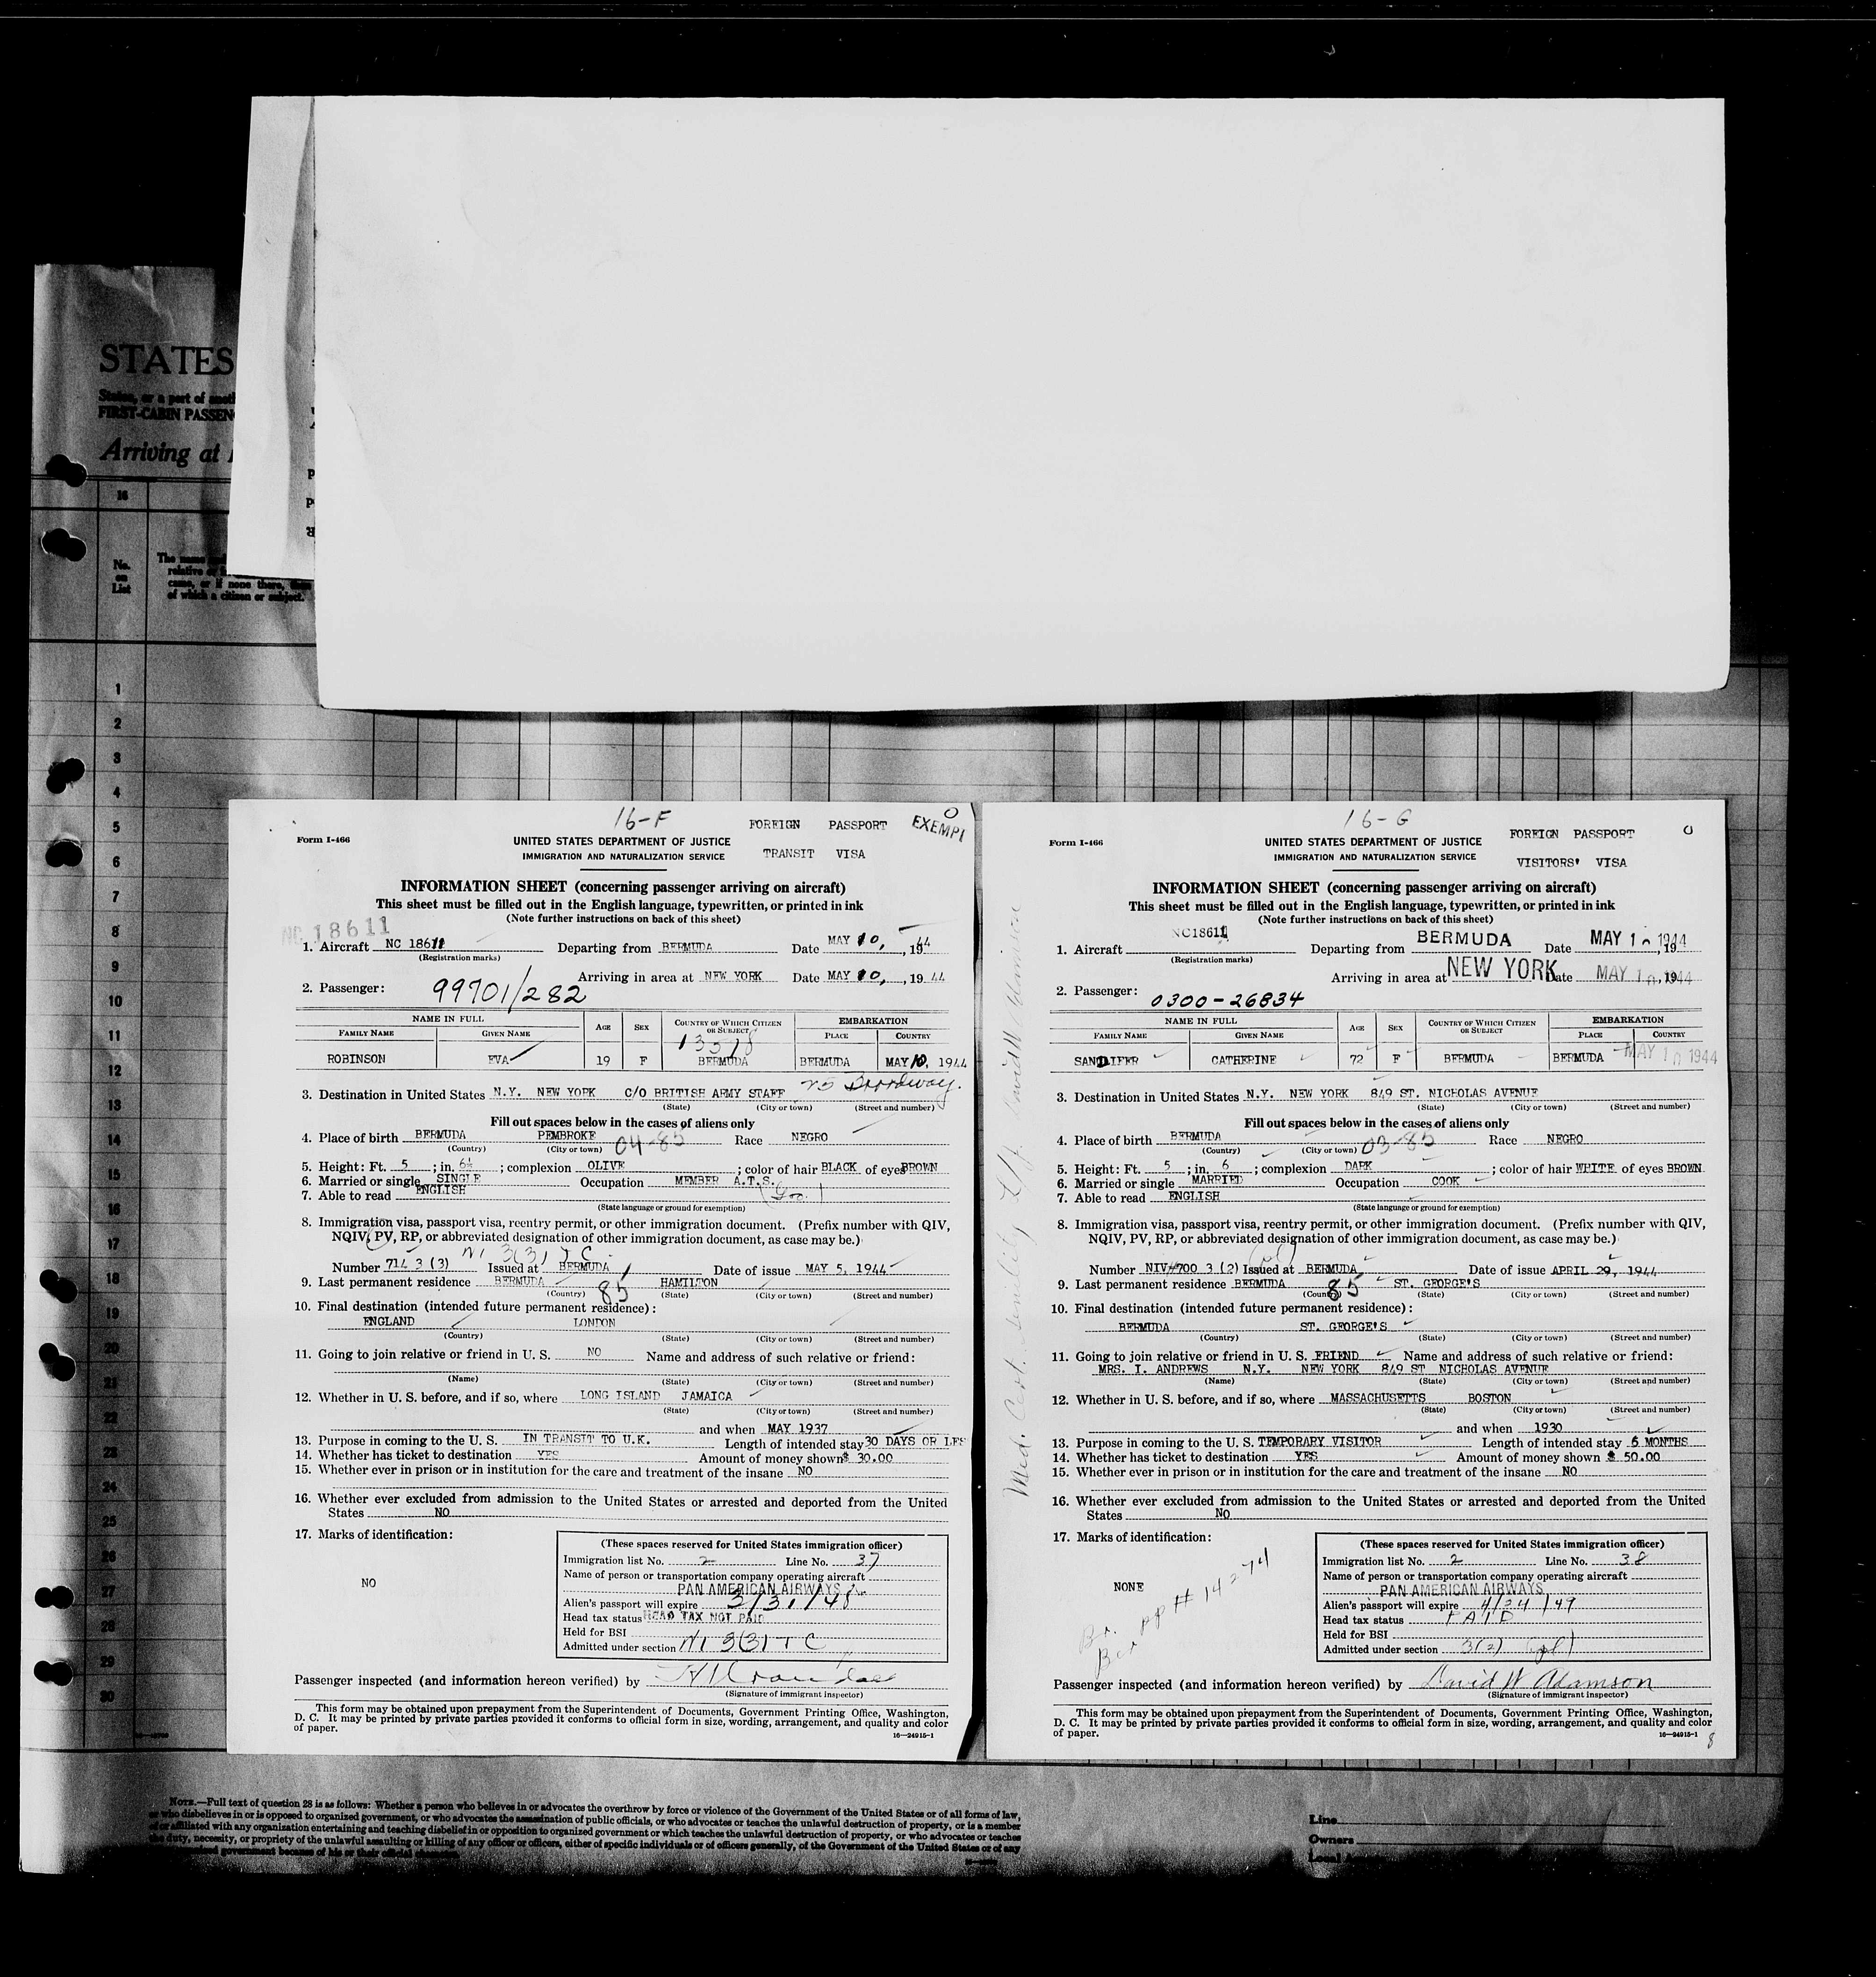 STATES
States, or a part of anoth
FIRST-CABIN PASSEN
Arriving at
16
No.
on
List
The name
relative or
came, or if none there, then
of which a citizen or subject.
1
2
3
4
5
6
7
8
9
10
11
12
13
14
15
16
17
18
19
20
21
22
23
24
25
26
27
28
29
30
16-F
Form I-466
UNITED STATES DEPARTMENT OF JUSTICE
IMMIGRATION AND NATURALIZATION SERVICE
FOREIGN PASSPORT
TRANSIT VISA
EXEMPT
INFORMATION SHEET (concerning passenger arriving on aircraft)
This sheet must be filled out in the English language, typewritten, or printed in ink
(Note further instructions on back of this sheet)
NC 18611
1. Aircraft NC 18611 Departing from BERMUDA Date MAY 10, , 1944
(Registration marks)
Arriving in area at NEW YORK Date MAY 10, , 1944
2. Passenger: 99701/282
NAME IN FULL AGE SEX COUNTRY OF WHICH CITIZEN OR SUBJECT EMBARKATION
FAMILY NAME GIVEN NAME PLACE COUNTRY
13518
ROBINSON EVA 19 F BERMUDA BERMUDA MAY 10, 1944
3. Destination in United States N.Y. NEW YORK C/O BRITISH ARMY STAFF 25 Broadway.
(State) (City or town) (Street and number)
Fill out spaces below in the cases of aliens only
4. Place of birth BERMUDA PEMBROKE 04-85 Race NEGRO
(Country) (City or town)
5. Height: Ft. 5 ; in. 6½ ; complexion OLIVE ; color of hair BLACK of eyes BROWN
6. Married or single SINGLE Occupation MEMBER A.T.S.
7. Able to read ENGLISH
(State language or ground for exemption)
8. Immigration visa, passport visa, reentry permit, or other immigration document. (Prefix number with QIV,
NQIV, PV, RP, or abbreviated designation of other immigration document, as case may be.)
NI 3(3) TC
Number 714 3 (3) Issued at BERMUDA Date of issue MAY 5, 1944
9. Last permanent residence BERMUDA 85 HAMILTON
(Country) (State) (City or town) (Street and number)
10. Final destination (intended future permanent residence):
ENGLAND LONDON
(Country) (State) (City or town) (Street and number)
11. Going to join relative or friend in U. S. NO Name and address of such relative or friend:
(Name) (State) (City or town) (Street and number)
12. Whether in U. S. before, and if so, where LONG ISLAND JAMAICA
(State) (City or town) (Street and number)
and when MAY 1937
13. Purpose in coming to the U. S. IN TRANSIT TO U.K. Length of intended stay 30 DAYS OR LES
14. Whether has ticket to destination YES Amount of money shown $ 30.00
15. Whether ever in prison or in institution for the care and treatment of the insane NO
16. Whether ever excluded from admission to the United States or arrested and deported from the United
States NO
17. Marks of identification:
NO
(These spaces reserved for United States immigration officer)
Immigration list No. 2 Line No. 37
Name of person or transportation company operating aircraft
PAN AMERICAN AIRWAYS
Alien's passport will expire 3/31/48
Head tax status HEAD TAX NOT PAID
Held for BSI
Admitted under section NI 3(3) TC
Passenger inspected (and information hereon verified) by
(Signature of immigrant inspector)
This form may be obtained upon prepayment from the Superintendent of Documents, Government Printing Office, Washington,
D. C. It may be printed by private parties provided it conforms to official form in size, wording, arrangement, and quality and color
of paper.
16—24915-1
16-G
Form I-466
UNITED STATES DEPARTMENT OF JUSTICE
IMMIGRATION AND NATURALIZATION SERVICE
FOREIGN PASSPORT
VISITORS' VISA
INFORMATION SHEET (concerning passenger arriving on aircraft)
This sheet must be filled out in the English language, typewritten, or printed in ink
(Note further instructions on back of this sheet)
1. Aircraft NC18611 Departing from BERMUDA Date MAY 10 1944
(Registration marks)
Arriving in area at NEW YORK Date MAY 10, 1944
2. Passenger: 0300-26834
NAME IN FULL AGE SEX COUNTRY OF WHICH CITIZEN OR SUBJECT EMBARKATION
FAMILY NAME GIVEN NAME PLACE COUNTRY
SANDLIFER CATHERINE 72 F BERMUDA BERMUDA MAY 10 1944
3. Destination in United States N.Y. NEW YORK 849 ST. NICHOLAS AVENUE
(State) (City or town) (Street and number)
Fill out spaces below in the cases of aliens only
4. Place of birth BERMUDA 03-85 Race NEGRO
(Country) (City or town)
5. Height: Ft. 5 ; in. 6 ; complexion DARK ; color of hair WHITE of eyes BROWN
6. Married or single MARRIED Occupation COOK
7. Able to read ENGLISH
(State language or ground for exemption)
8. Immigration visa, passport visa, reentry permit, or other immigration document. (Prefix number with QIV,
NQIV, PV, RP, or abbreviated designation of other immigration document, as case may be.)
Number NIV#700 3 (2) Issued at BERMUDA Date of issue APRIL 29, 1944
9. Last permanent residence BERMUDA 85 ST. GEORGE'S
(Country) (State) (City or town) (Street and number)
10. Final destination (intended future permanent residence):
BERMUDA ST. GEORGE'S
(Country) (State) (City or town) (Street and number)
11. Going to join relative or friend in U. S. FRIEND Name and address of such relative or friend:
MRS. I. ANDREWS N.Y. NEW YORK 849 ST NICHOLAS AVENUE
(Name) (State) (City or town) (Street and number)
12. Whether in U. S. before, and if so, where MASSACHUSETTS BOSTON
(State) (City or town) (Street and number)
and when 1930
13. Purpose in coming to the U. S. TEMPORARY VISITOR Length of intended stay 6 MONTHS
14. Whether has ticket to destination YES Amount of money shown $ 50.00
15. Whether ever in prison or in institution for the care and treatment of the insane NO
16. Whether ever excluded from admission to the United States or arrested and deported from the United
States NO
17. Marks of identification:
NONE
Br.
Ber pp # 14274
(These spaces reserved for United States immigration officer)
Immigration list No. 2 Line No. 38
Name of person or transportation company operating aircraft
PAN AMERICAN AIRWAYS
Alien's passport will expire 4/24/49
Head tax status PAID
Held for BSI
Admitted under section 3(2)
Passenger inspected (and information hereon verified) by David W Adamson
(Signature of immigrant inspector)
This form may be obtained upon prepayment from the Superintendent of Documents, Government Printing Office, Washington,
D. C. It may be printed by private parties provided it conforms to official form in size, wording, arrangement, and quality and color
of paper.
16—24915-1
8
Med. Cert. Senility David W Adamson
NOTE.—Full text of question 28 is as follows: Whether a person who believes in or advocates the overthrow by force or violence of the Government of the United States or of all forms of law,
or who disbelieves in or is opposed to organized government, or who advocates the assassination of public officials, or who advocates or teaches the unlawful destruction of property, or is a member
of or affiliated with any organization entertaining and teaching disbelief in or opposition to organized government or which teaches the unlawful destruction of property, or who advocates or teaches
the duty, necessity, or propriety of the unlawful assaulting or killing of any officer or officers, either of specific individuals or of officers generally, of the Government of the United States or of any
government because of his or their official
Line
Owners
Local